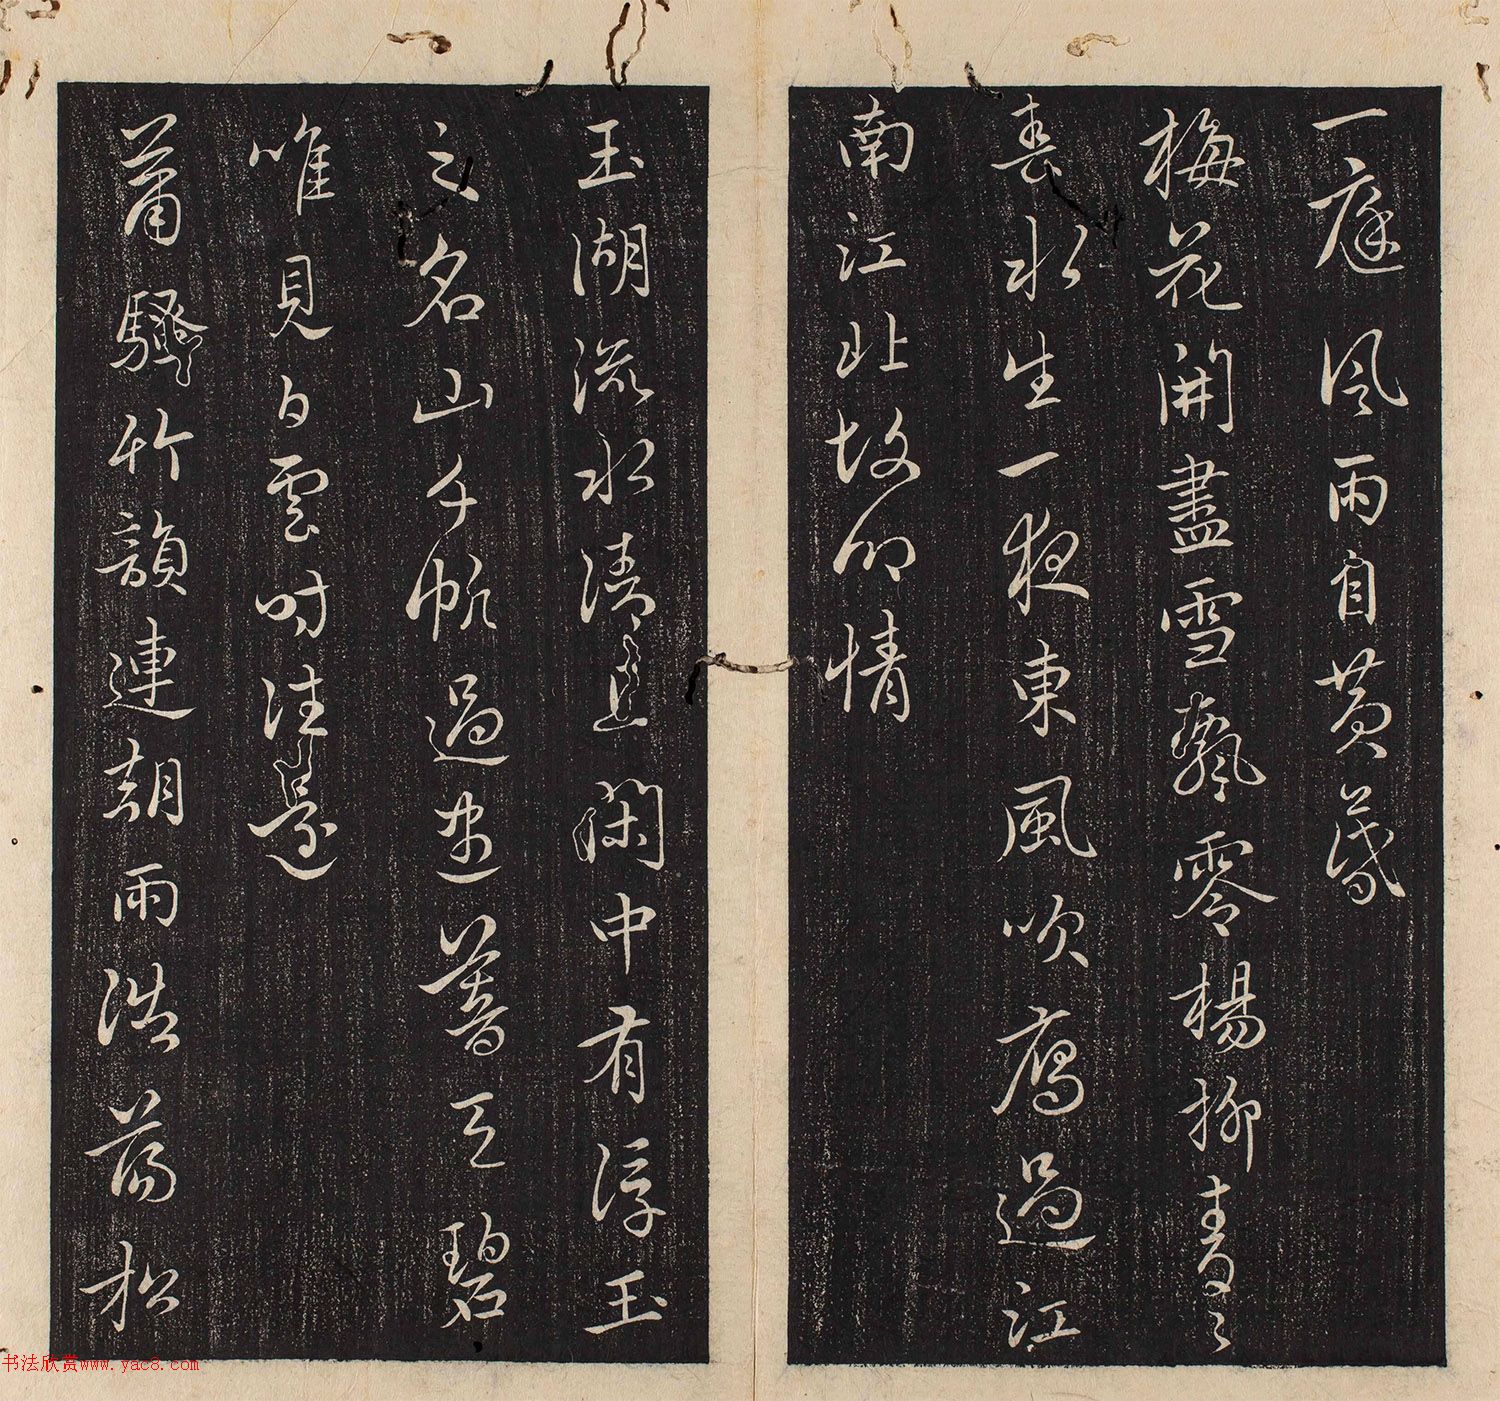 一庭風雨自黃昏
梅花開盡雪飄零楊柳青々
春水生一夜東風吹鴈過江
南江北故鄉情
玉湖流水清且閑中有浮玉
之名山千帆過盡暮天碧
唯見白雲時往還
蕭騷竹韻連朝雨浩蕩松
书法欣赏www.yac8.com